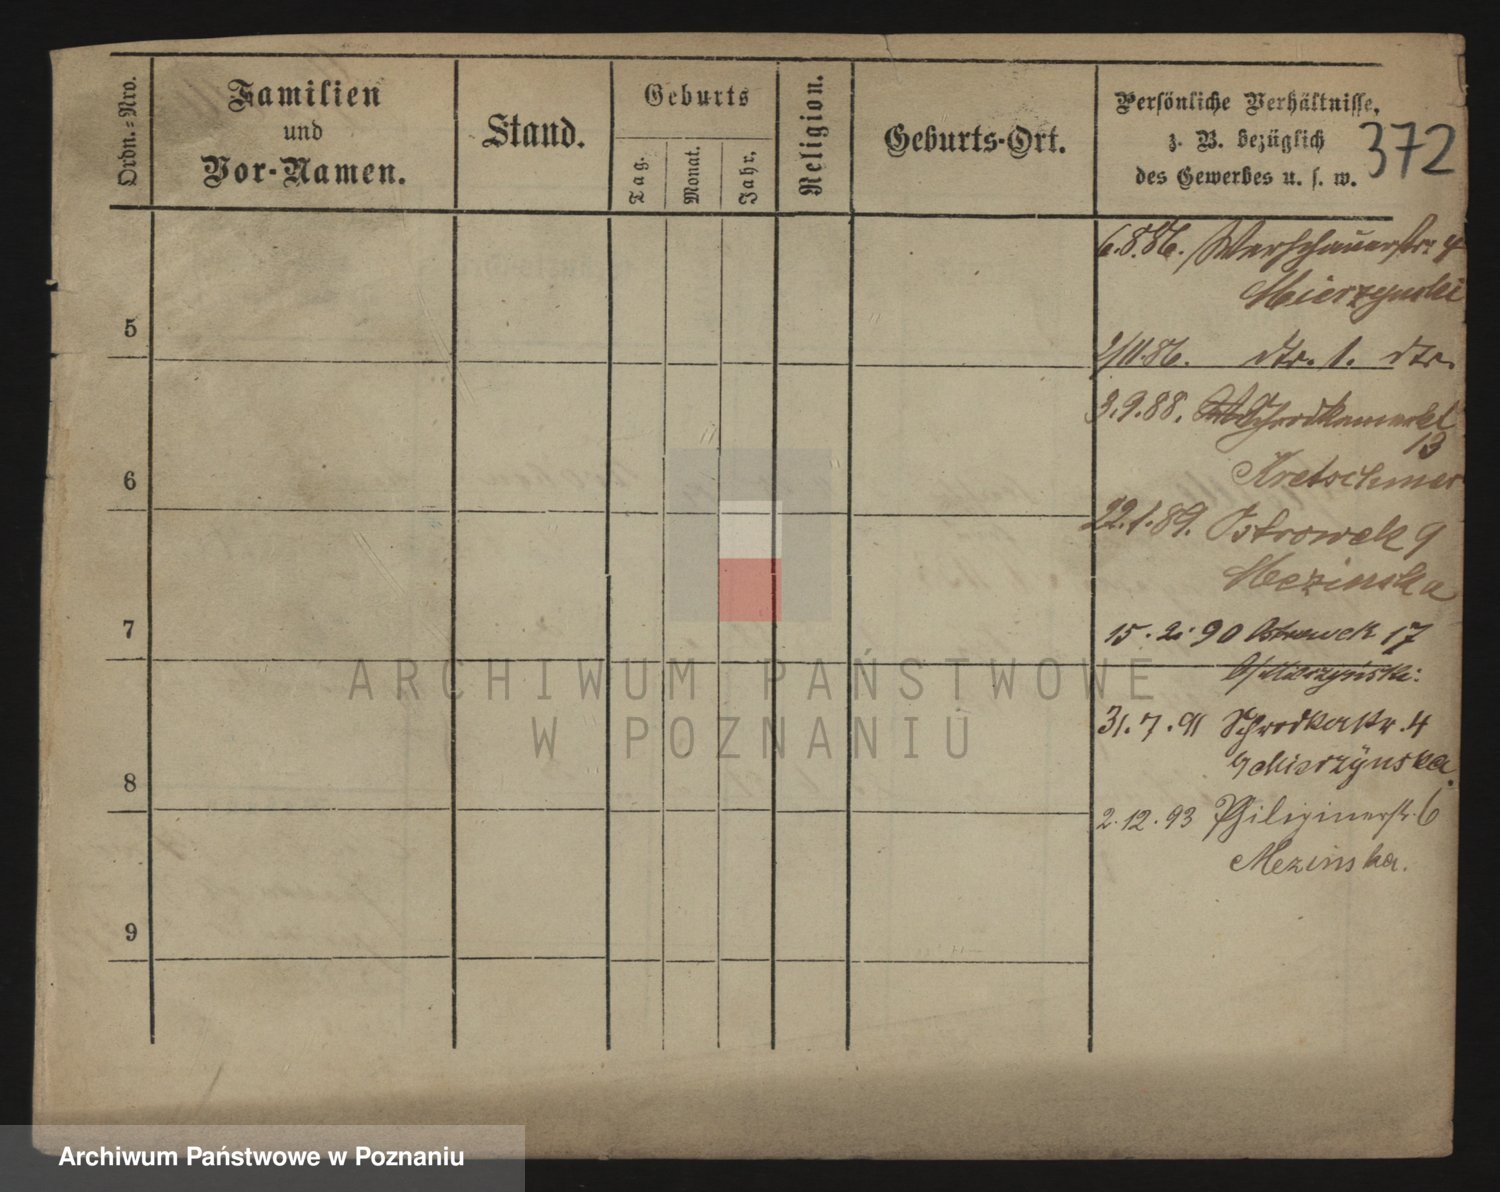 Ordn.-Nro.
Familien
und
Vor-Namen.
Stand.
Geburts
Tag.
Monat.
Jahr.
Religion.
Geburts-Ort.
Persönliche Verhältnisse,
z. B. bezüglich
des Gewerbes u. s. w.
372
6.8.86. Warschauerstr. 4
Mierzynski
5
2/11.86. dtr. 1. dtr.
3.9.88. Schrodkamarkt
13
6
Kretschmer
22.1.89. Ostrowek 9
Mezinska
7
15. 2. 90 Ostrowek 17
b/ Mierzyński
31. 7. 91 Schrodkastr. 4
Mierzÿnska.
8
2. 12. 93 6
Mezinska.
9
ARCHIWUM PAŃSTWOWE
W POZNANIU
Archiwum Państwowe w Poznaniu